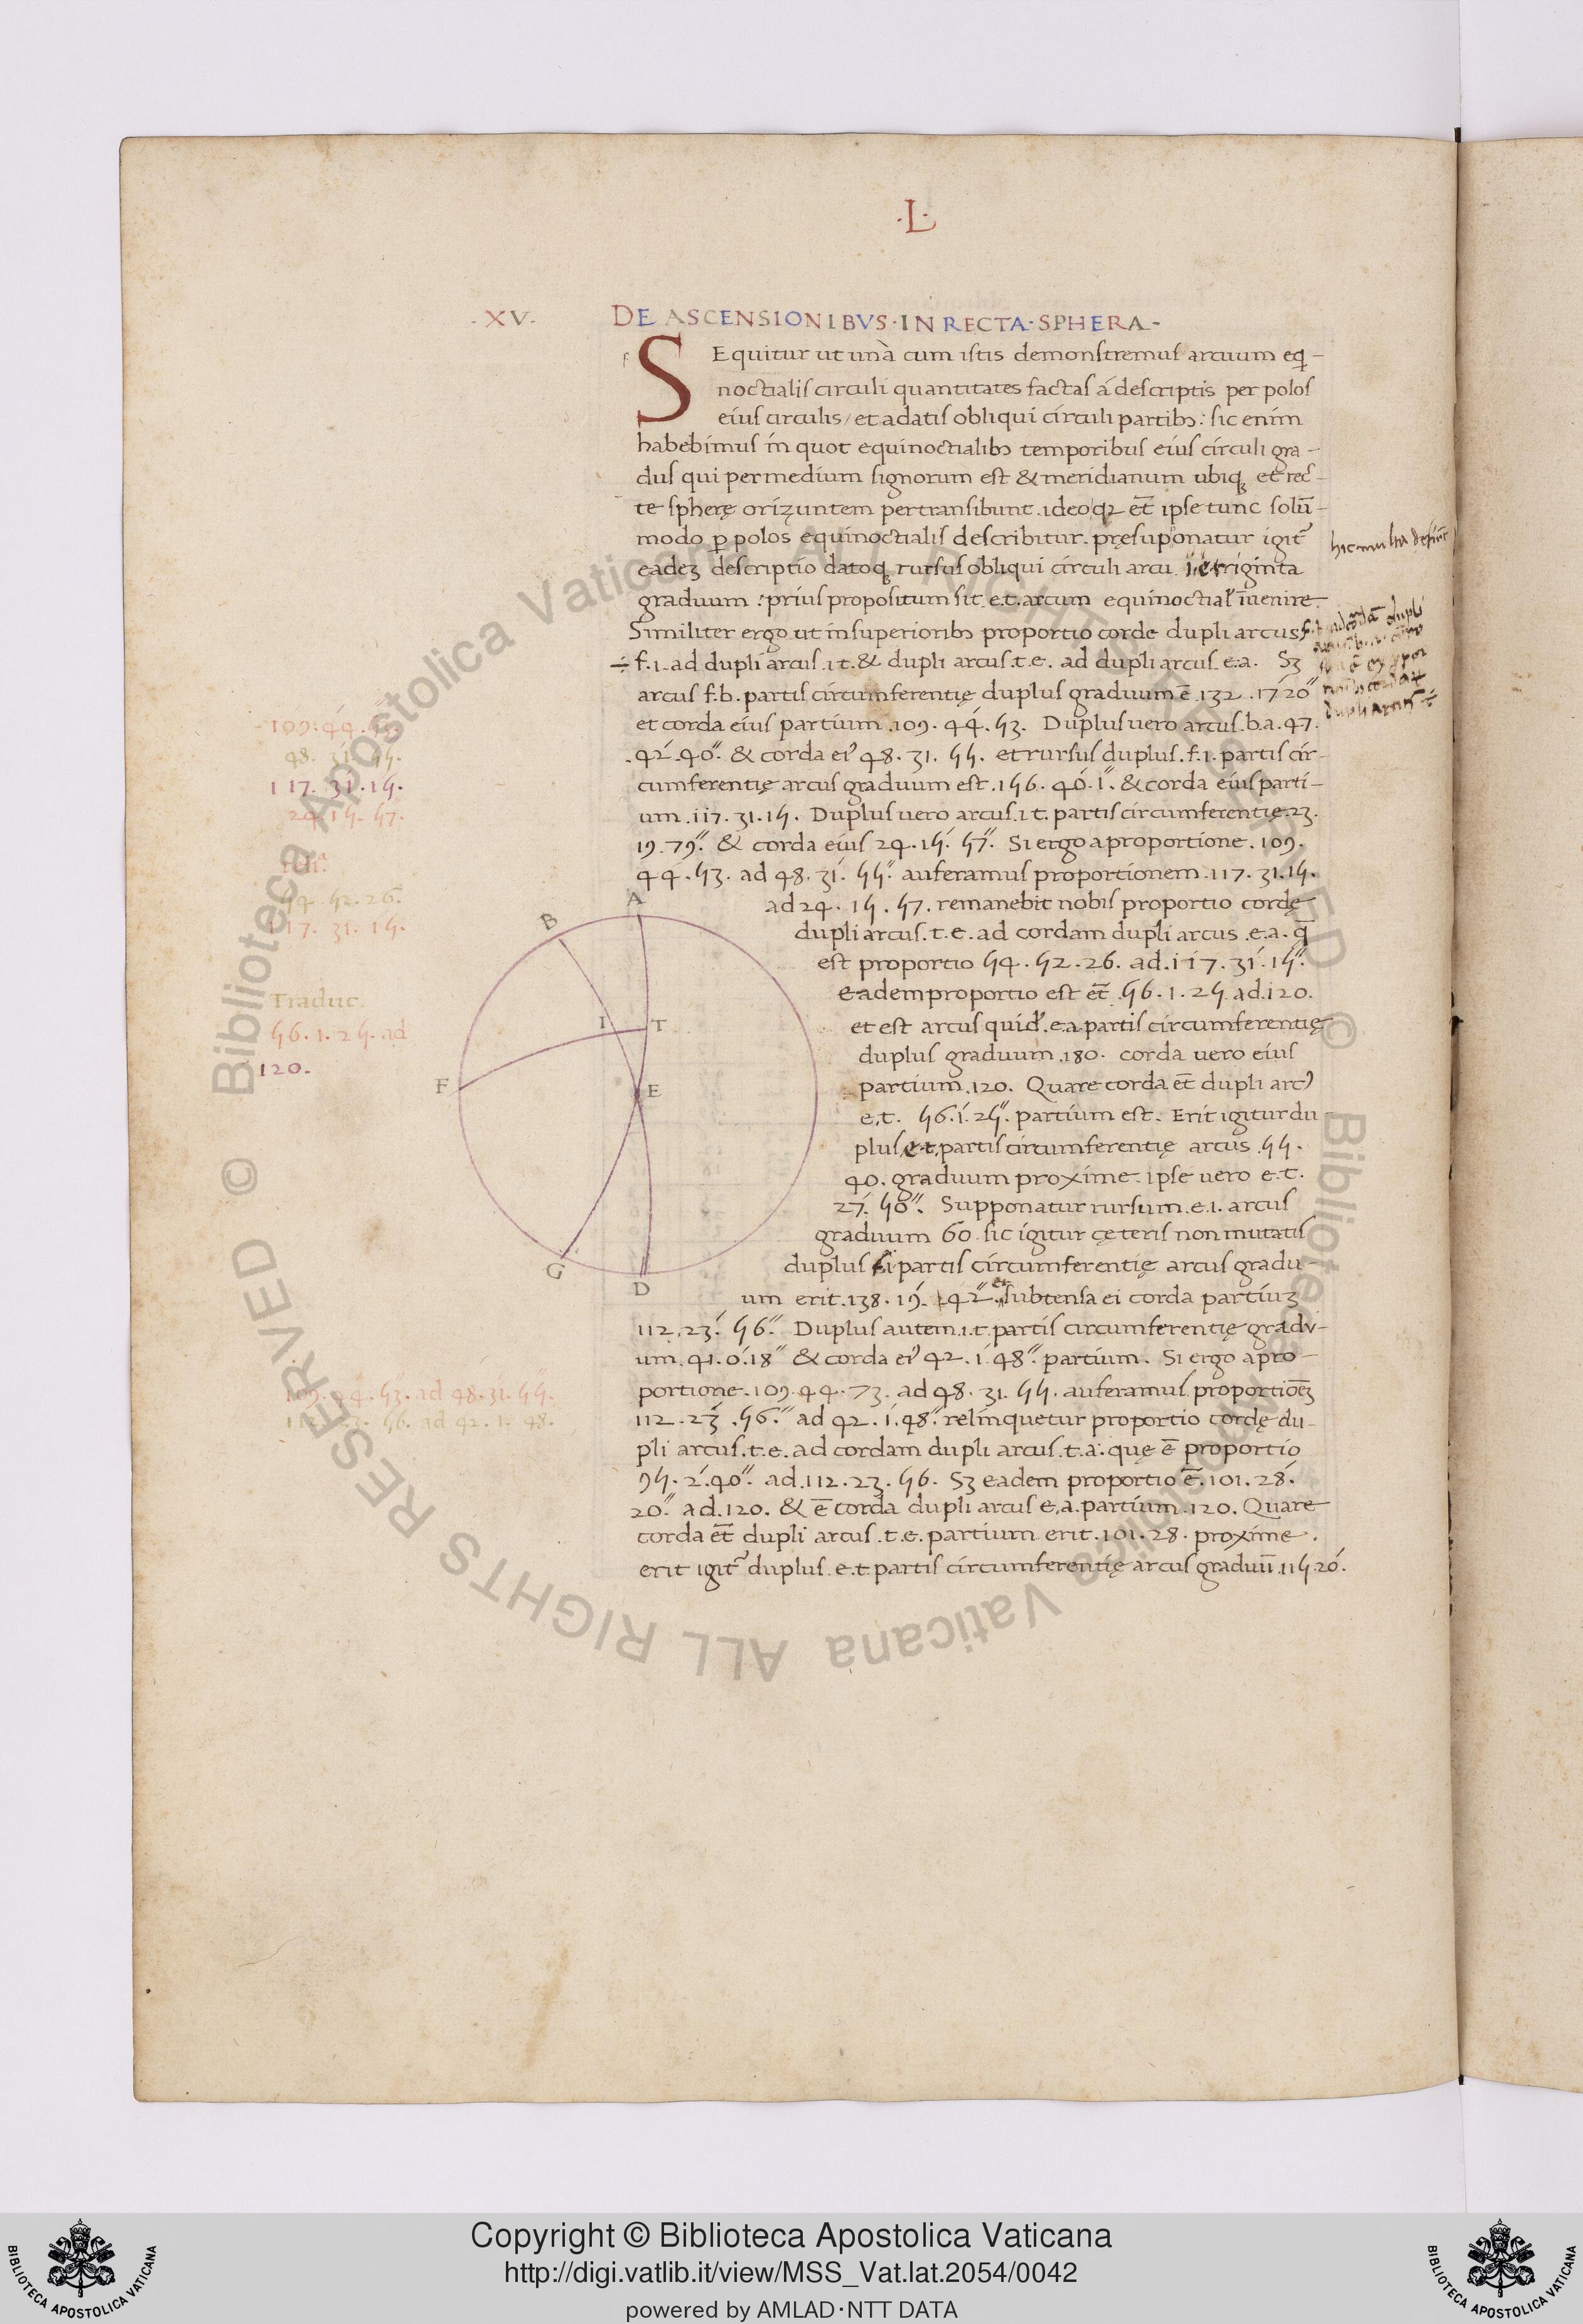 ·L·
·XV· DE ASCENSIONIBVS·IN RECTA·SPHERA·
SEquitur ut unà cum istis demonstremus arcuum eq̨ -
noctialis circuli quantitates factas á descriptis per polos
eius circulis / et a datis obliqui circuli partibꝫ : sic enim
habebimus in quot equinoctialibꝫ temporibus eius circuli gra -
dus qui per medium signorum est & meridianum ubiqꝫ et rec -
te spherę orizuntem pertransibunt . ideo qꝫ et̄ ipse tunc solū -
modo ꝑ polos equinoctialis describitur . pręsuponatur igit᷑
eadeꝫ descriptio datoqꝫ rursus obliqui circuli arcu .i.e. triginta
graduum : prius propositum sit .e.t. arcum equinoctial' īuenire .
Similiter ergo ut in superioribꝫ proportio corde dupli arcus
÷ f.i. ad dupli arcus .i t. & dupli arcus .t.e. ad dupli arcus .e.a. Sꝫ
arcus f.b. partis circumferentię duplus graduum ē 132 . 17 20''
et corda eius partium .109. 44. 53. Duplus vero arcus .b.a. 47.
.42'.40''. & corda ei' 48. 31. 55. et rursus duplus .f.i. partis cir -
cumferentię arcus graduum est .156. 40'. 1''. & corda eius parti -
um .117. 31. 15. Duplus uero arcus .i t. partis circumferentię .23.
19. 79''. & corda eius 24. 15'. 57''. Si ergo a proportione .109.
44. 53. ad 48. 31'. 55''. auferamus proportionem .117. 31. 15.
ad 24. 15. 57. remanebit nobis proportio cordę
dupli arcus .t.e. ad cordam dupli arcus .e.a. q̄
est proportio 54. 52. 26. ad .117. 31'. 15''.
eadem proportio est et̄ .56. 1. 25 ad .120.
et est arcus quid' .e.a. partis circumferentię
duplus graduum .180. corda uero eius
partium .120. Quare corda et̄ dupli arc'
e.t. 56. 1'. 25''. partium est. Erit igitur du
plus .e.t. partis circumferentię arcus .55.
40. graduum proxime . ipse uero e.t.
27'. 50''. Supponatur rursum .e.i. arcus
graduum 60 . sic igitur cęteris non mutatis
duplus fi partis circumferentię arcus gradu -
um erit .138. 19'. 42''. et subtensa ei corda partiuꝫ
112. 23'. 56''. Duplus autem .i.t. partis circumferentię gradu -
um .41. 0'. 18'' & corda ei' 42. 1'. 48''. partium . Si ergo a pro -
portione .109. 44. 73. ad 48. 31. 55. auferamus proportiōeꝫ
112. 23'. 56.'' ad 42. 1'. 48''. relinquetur proportio cordę du -
pli arcus .t.e. ad cordam dupli arcus .t.a. quę ē proportio
95. 2'. 40''. ad .112. 23. 56. Sꝫ eadem proportio ē .101. 28'.
20''. ad .120. & ē corda dupli arcus e.a. partium .120. Quare
corda et̄ dupli arcus .t.e. partium erit .101. 28. proxime .
erit igit᷑ duplus .e.t. partis circumferentię arcus graduū .115. 20'.
hic multa desunt
dupli arcus
109. 44.
48. 31.
117. 31. 15.
24. 15. 57.
54. 52. 26.
117. 31. 15.
Traduc.
56. 1. 25. ad
120.
109. 44. 53. ad 48. 31. 55.
112. 23. 56. ad 42. 1. 48.
A
B
I
T
F
E
G
D
© Biblioteca Apostolica Vaticana ALL RIGHTS RESERVED © Biblioteca Apostolica Vaticana ALL RIGHTS RESERVED
Copyright © Biblioteca Apostolica Vaticana
http://digi.vatlib.it/view/MSS_Vat.lat.2054/0042
powered by AMLAD·NTT DATA
BIBLIOTECA APOSTOLICA VATICANA
BIBLIOTECA APOSTOLICA VATICANA